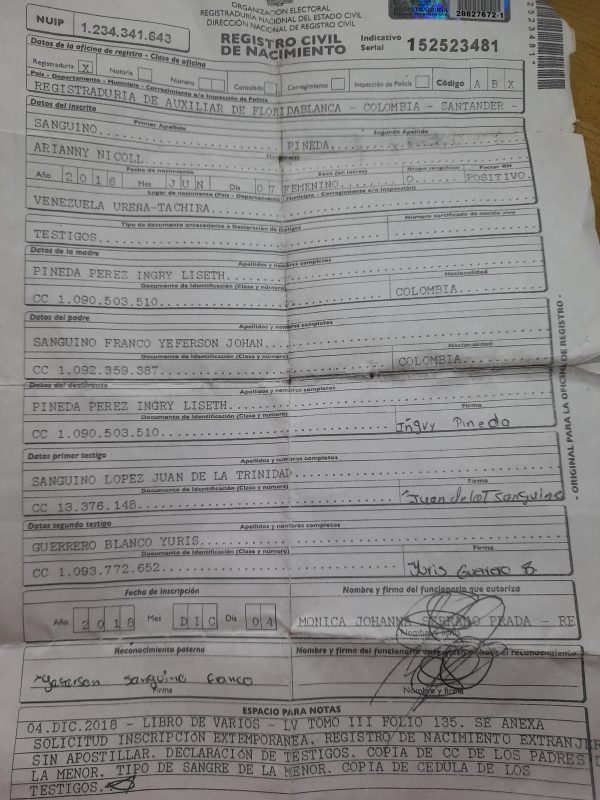 ORGANIZACION ELECTORAL
REGISTRADURIA NACIONAL DEL ESTADO CIVIL
DIRECCIÓN NACIONAL DE REGISTRO CIVIL
NUIP 1.234.341.643
REGISTRO CIVIL DE NACIMIENTO
Indicativo Serial 152523481
28827672-1
152523481*
Datos de la oficina de registro - Clase de oficina
Registraduría X Notaría Número Consulado Corregimiento Inspección de Policía Código A B X
País - Departamento - Municipio - Corregimiento e/o Inspección de Policía
REGISTRADURIA DE AUXILIAR DE FLORIDABLANCA - COLOMBIA - SANTANDER -
Datos del inscrito
Primer Apellido Segundo Apellido
SANGUINO PINEDA
ARIANNY NICOLL
Fecha de nacimiento Sexo (en letras) Grupo sanguíneo Factor RH
Año 2016 Mes JUN Día 07 FEMENINO O POSITIVO
Lugar de nacimiento (País - Departamento - Municipio - Corregimiento e/o Inspección)
VENEZUELA UREÑA-TACHIRA
Tipo de documento antecedente o Declaración de testigos Número certificado de nacido vivo
TESTIGOS
Datos de la madre
Apellidos y nombres completos
PINEDA PEREZ INGRY LISETH
Documento de identificación (Clase y número) Nacionalidad
CC 1.090.503.510 COLOMBIA
Datos del padre
Apellidos y nombres completos
SANGUINO FRANCO YEFERSON JOHAN
Documento de identificación (Clase y número) Nacionalidad
CC 1.092.359.387 COLOMBIA
Datos del declarante
Apellidos y nombres completos
PINEDA PEREZ INGRY LISETH
Documento de identificación (Clase y número) Firma
CC 1.090.503.510 Ingry Pineda
Datos primer testigo
Apellidos y nombres completos
SANGUINO LOPEZ JUAN DE LA TRINIDAD
Documento de identificación (Clase y número) Firma
CC 13.376.148 Juan de la T Sanguino
Datos segundo testigo
Apellidos y nombres completos
GUERRERO BLANCO YURIS
Documento de identificación (Clase y número) Firma
CC 1.093.772.652 Yuris Guerrero B
Fecha de inscripción Nombre y firma del funcionario que autoriza
Año 2018 Mes DIC Día 04 MONICA JOHANNA SERRANO PRADA - RE
Nombre y firma
Reconocimiento paterno Nombre y firma del funcionario ante quien se hace el reconocimiento
Yeferson Sanguino Franco
Firma Nombre y firma
ESPACIO PARA NOTAS
04.DIC.2018 - LIBRO DE VARIOS - LV TOMO III FOLIO 135. SE ANEXA
SOLICITUD INSCRIPCIÓN EXTEMPORANEA. REGISTRO DE NACIMIENTO EXTRANJER
SIN APOSTILLAR. DECLARACIÓN DE TESTIGOS. COPIA DE CC DE LOS PADRES D
LA MENOR. TIPO DE SANGRE DE LA MENOR. COPIA DE CEDULA DE LOS
TESTIGOS.
- ORIGINAL PARA LA OFICINA DE REGISTRO -